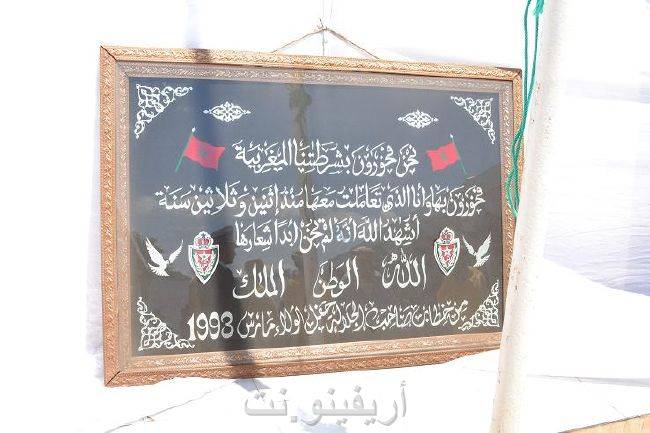 نحن فخورون بشرطتنا المغربية
فخورون بها وانا الذي تعاملت معها منذ إثنين وثلاثين سنة
أشهد الله أنه لم تخن ابدا شعارها
الله الوطن الملك
من خطاب صاحب الجلالة مارس 1998
أريفينو.نت